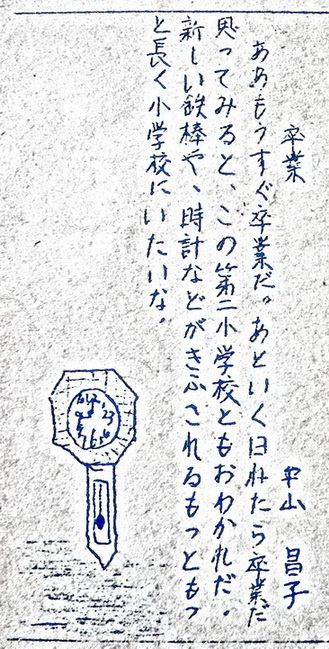 卒業
平山 昌子
ああもうすぐ卒業だ。あといく日ねたら卒業だ
思ってみると、この第二小学校ともおわかれだ。
新しい鉄棒や、時計などがきふされるもっともっ
と長く小学校にいたいな。